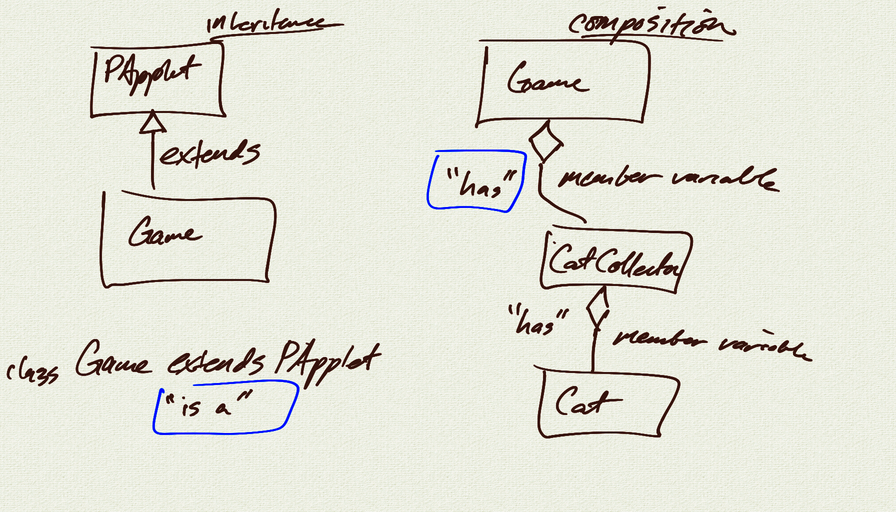 inheritance
PApplet
extends
Game
class Game extends PApplet
"is a"
composition
Game
"has"
member variable
CatCollector
"has"
member variable
Cat